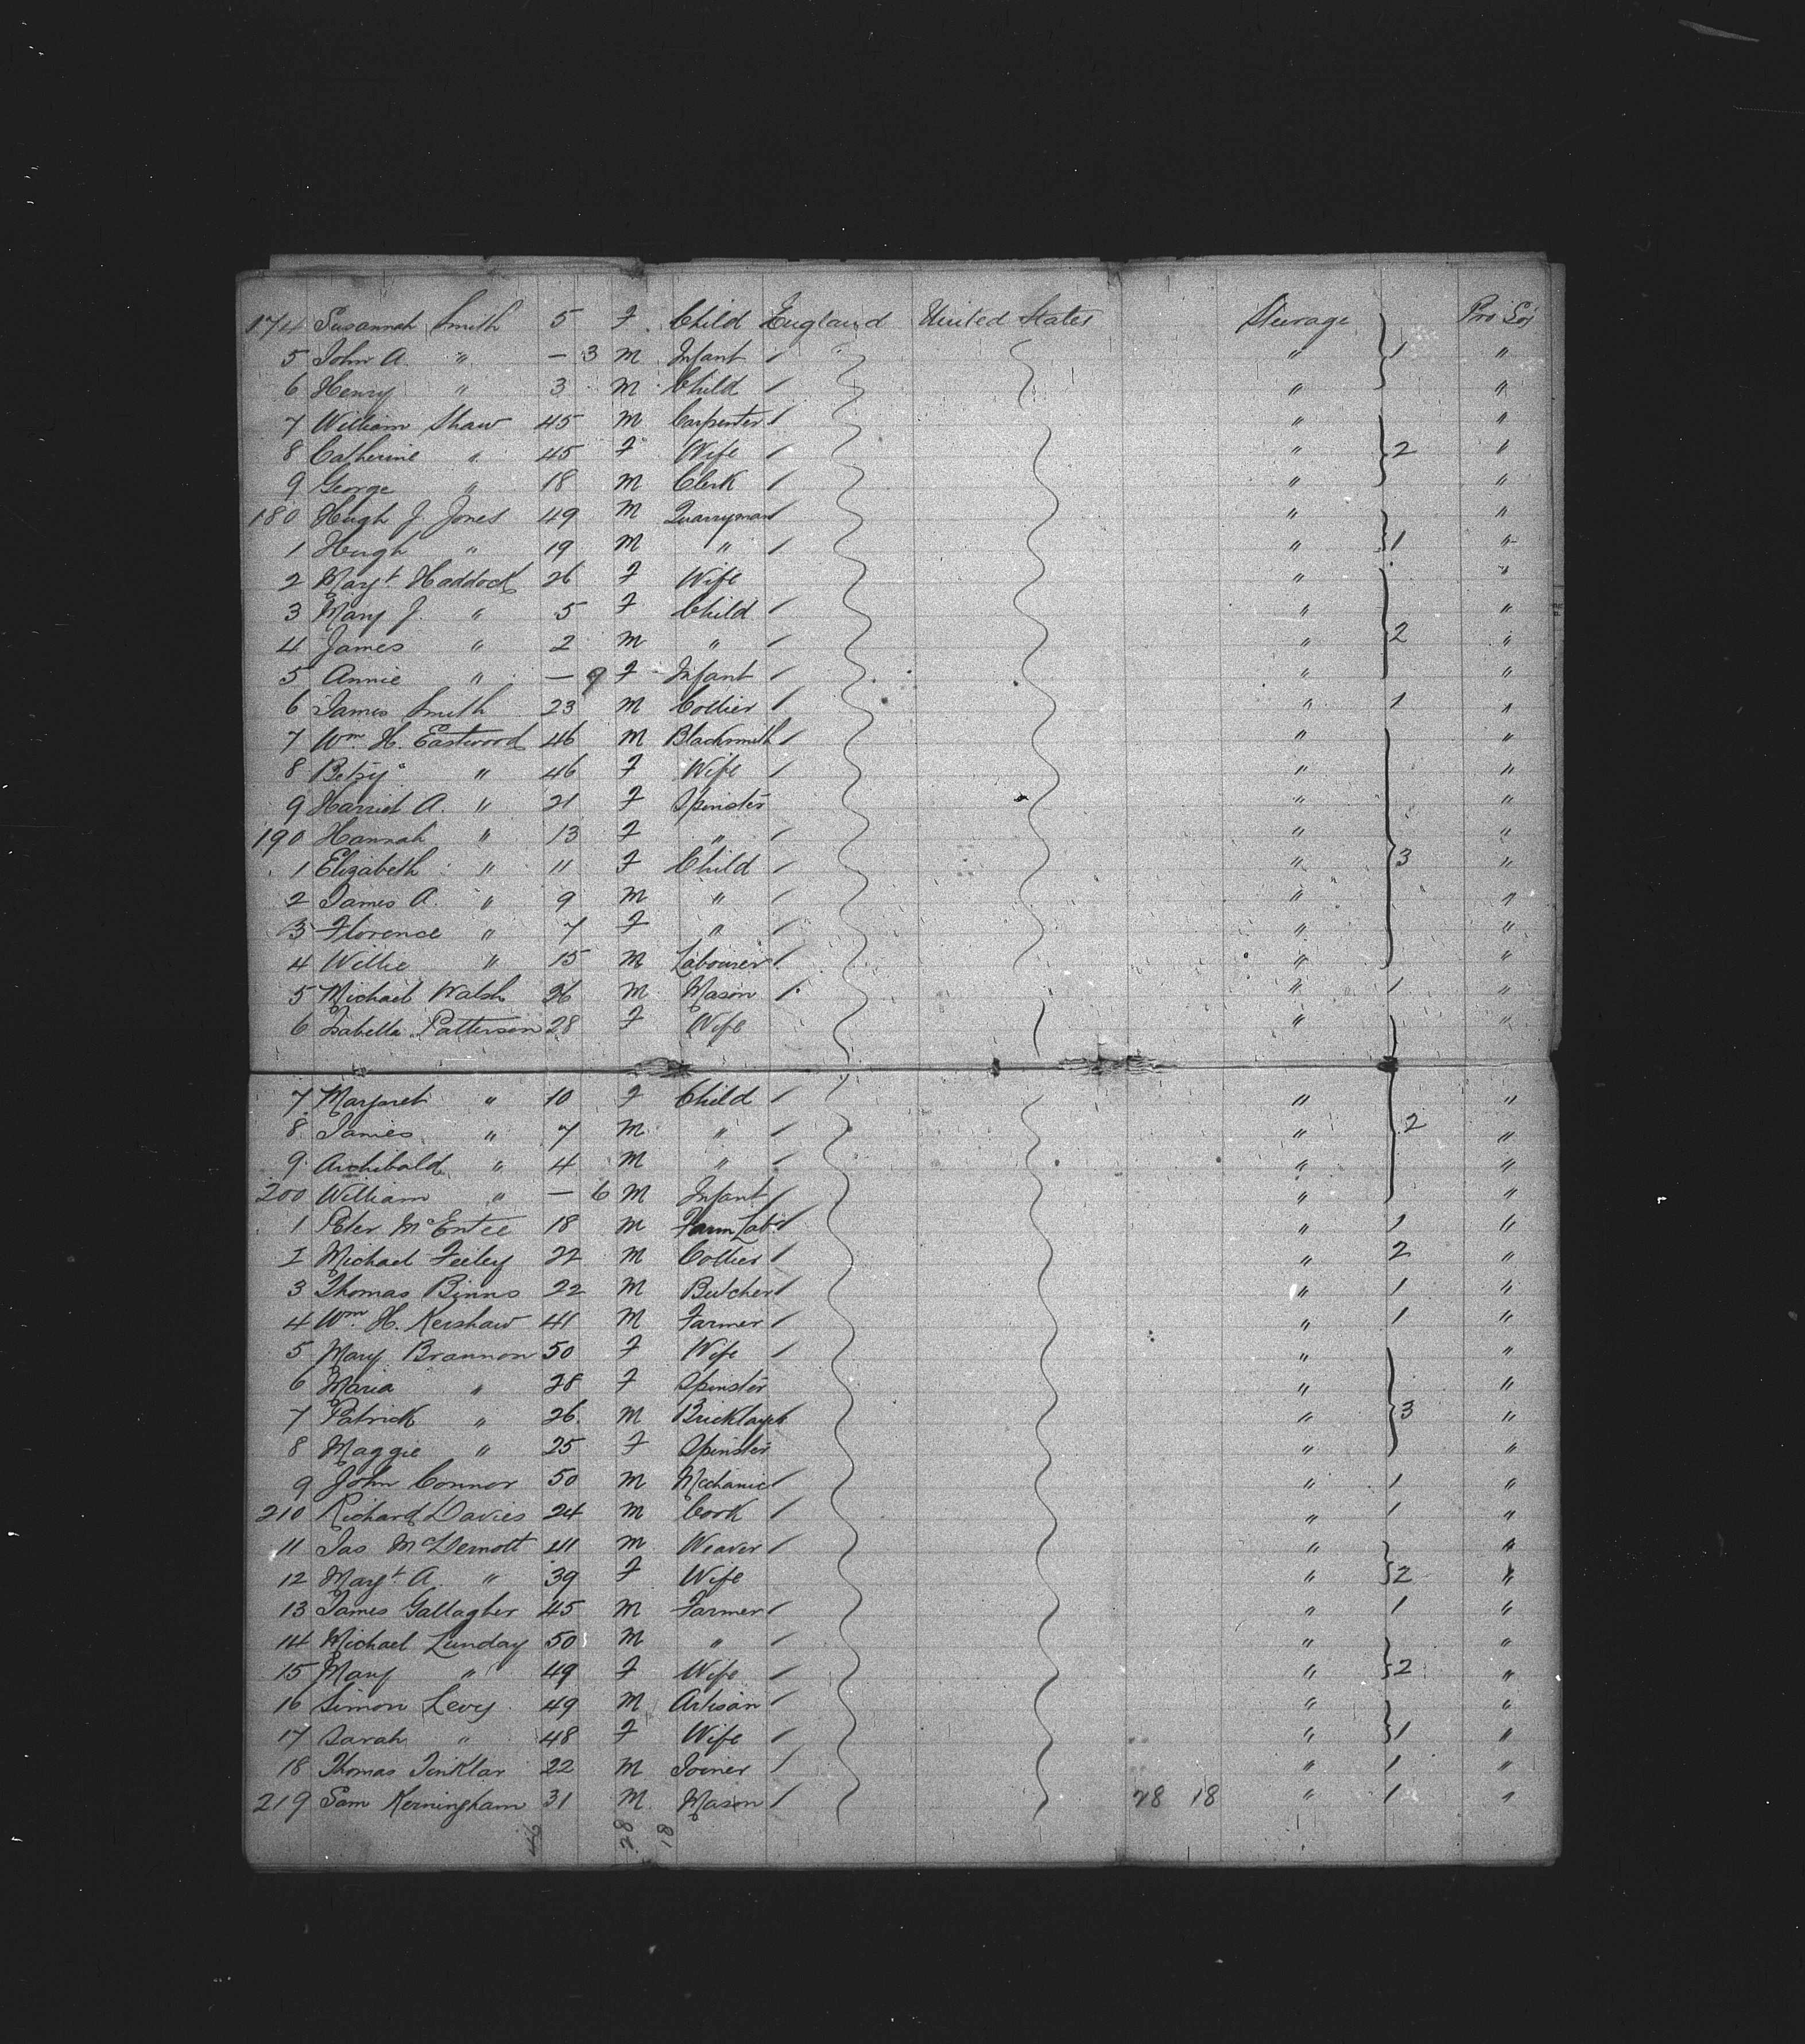 174 Susannah Smith 5 F. Child England United States Steerage Pro Soj
5 John A. " — 3 M Infant / " 1 "
6 Henry " 3 M Child / " "
7 William Shaw 45 M Carpenter / " "
8 Catherine " 45 F Wife / " 2 "
9 George " 18 M Clerk / " "
180 Hugh J Jones 49 M Quarryman / " "
1 Hugh " 19 M " / " 1 "
2 Mary t. Haddock 26 F Wife " "
3 Mary J. " 5 F Child / " "
4 James " 2 M " / " 2 "
5 Annie " — 9 F Infant / " "
6 James Smith 23 M Collier / " 1 "
7 Wm. H. Eastwood 46 M Blacksmith / " "
8 Betsy " 46 F Wife / " "
9 Harriet A " 21 F Spinster " "
190 Hannah " 13 F " / " "
1 Elizabeth " 11 F Child / " 3 "
2 James A. " 9 M " / " "
3 Florence " 7 F " / " "
4 Willie " 15 M Labourer / " "
5 Michael Walsh 26 M Mason / " 1 "
6 Isabella Patterson 28 F Wife " "
7 Margaret " 10 F Child / " "
8 James " 7 M " / " 2 "
9 Archibald " 4 M " / " "
200 William " — 6 M Infant / " "
1 Peter McEntee 18 M Farm Labr / " 1 "
2 Michael Feeley 22 M Collier / " 2 "
3 Thomas Binns 22 M Butcher / " 1 "
4 Wm. H. Kershaw 41 M Farmer / " 1 "
5 Mary Brannon 50 F Wife / " "
6 Maria " 28 F Spinster " "
7 Patrick " 26 M Bricklayer " 3 "
8 Maggie " 25 F Spinster " "
9 John Connor 50 M Mechanic / " 1 "
210 Richard Davies 24 M Cork / " 1 "
11 Jas McDermott 41 M Weaver / " "
12 Mary t. A " 39 F Wife " 2 "
13 James Gallagher 45 M Farmer / " 1 "
14 Michael Lunday 50 M " / " "
15 Mary " 49 F Wife / " 2 "
16 Simon Levy 49 M Artisan / " "
17 Sarah " 48 F Wife / " 1 "
18 Thomas Tinklar 22 M Joiner / " 1 "
219 Sam Kerningham 31 M Mason / 28 18 " 1 "
46 28 18